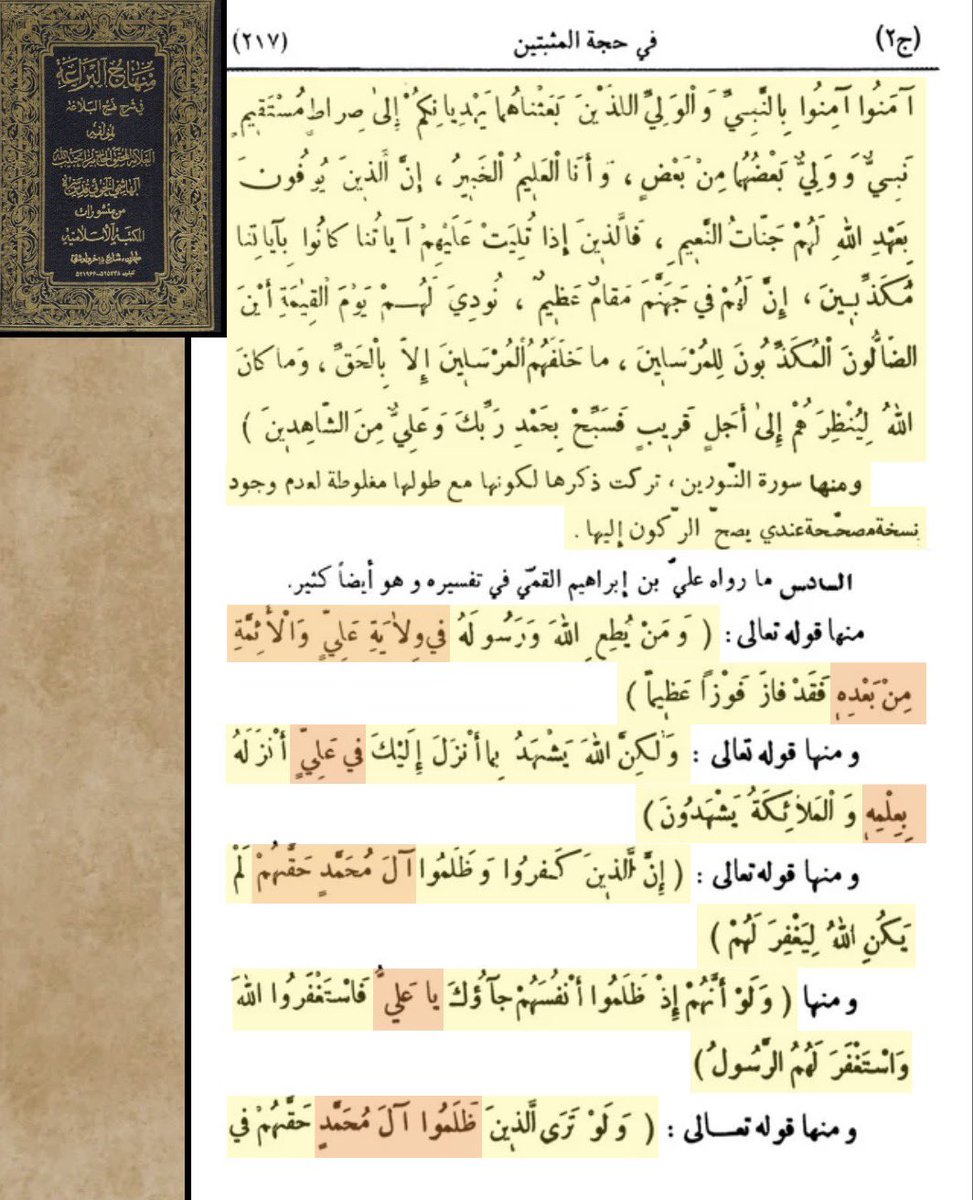 منهاج البراعة
في شرح نهج البلاغة
لمؤلفه
من منشورات
المكتبة الإسلامية
(ج٢) في حجة المثبتين (٢١٧)
آمَنُوا آمِنُوا بِالنَّبِيِّ وَ الْوَلِيِّ اللَّذَيْنَ بَعَثْناهُما يَهْدِيانِكُمْ إِلىٰ صِراطٍ مُسْتَقيمٍ
نَبِيٌّ وَ وَلِيٌّ بَعْضُهُما مِنْ بَعْضٍ ، وَ أَنَا الْعَليمُ الْخَبيرُ ، إِنَّ الَّذينَ يُوفُونَ
بِعَهْدِ اللهِ لَهُمْ جَنّاتُ النَّعيمِ ، فَالَّذينَ إِذا تُلِيَتْ عَلَيْهِمْ آياتُنا كانُوا بِآياتِنا
مُكَذِّبينَ ، إِنَّ لَهُمْ في جَهَنَّمَ مَقامٌ عَظيمٌ ، نُودِيَ لَهُمْ يَوْمَ الْقِيٰمَةِ أَيْنَ
الضّالُّونَ الْمُكَذِّبُونَ لِلْمُرْسَلينَ ، ما خَلَفَهُمُ الْمُرْسَلينَ إِلاّ بِالْحَقِّ ، وَما كانَ
اللهُ لِيُنْظِرَهُمْ إِلىٰ أَجَلٍ قَريبٍ فَسَبِّحْ بِحَمْدِ رَبِّكَ وَ عَلِيٌّ مِنَ الشّاهِدينَ )
ومنها سورة النّورين ، تركت ذكرها لكونها مع طولها مغلوطة لعدم وجود
نسخة مصحّحة عندي يصحّ الرّكون إليها .
السادس ما رواه عليّ بن إبراهيم القمّي في تفسيره و هو أيضاً كثير.
منها قوله تعالى : ( وَ مَنْ يُطِعِ اللهَ وَ رَسُولَهُ في وِلايَةِ عَلِيٍّ وَالْأَئِمَّةِ
مِنْ بَعْدِهِ فَقَدْ فازَ فَوْزاً عَظيماً )
و منها قوله تعالى : وَلٰكِنِ اللهُ يَشْهَدُ بِما أَنْزَلَ إِلَيْكَ في عَلِيٍّ أَنْزَلَهُ
بِعِلْمِهِ وَ الْمَلائِكَةُ يَشْهَدُونَ )
و منها قوله تعالى : ( إِنَّ الَّذينَ كَفَرُوا وَ ظَلَمُوا آلَ مُحَمَّدٍ حَقَّهُمْ لَمْ
يَكُنِ اللهُ لِيَغْفِرَ لَهُمْ )
و منها ( وَ لَوْ أَنَّهُمْ إِذْ ظَلَمُوا أَنْفُسَهُمْ جآؤُكَ يا عَلِيُّ فَاسْتَغْفَرُوا اللهَ
وَاسْتَغْفَرَ لَهُمُ الرَّسُولُ )
و منها قوله تعالى : ( وَ لَوْ تَرَى الَّذينَ ظَلَمُوا آلَ مُحَمَّدٍ حَقَّهُمْ في